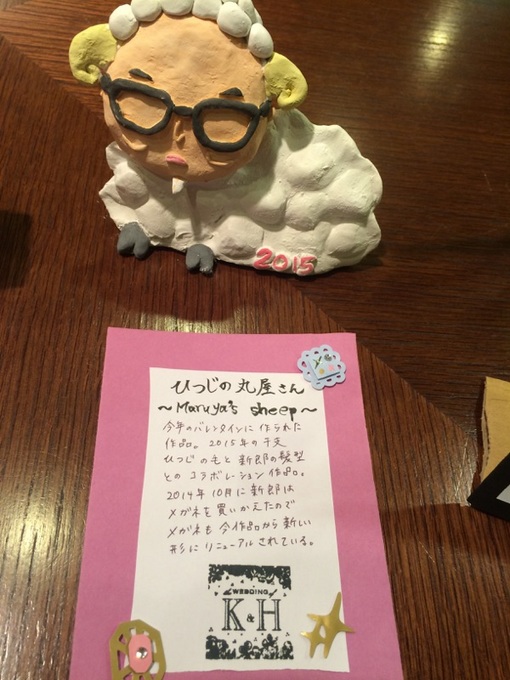 2015
ひつじの丸屋さん
～Maruya's sheep～
今年のバレンタインに作られた
作品。2015年の干支
ひつじの毛と新郎の髪型
とのコラボレーション作品。
2014年10月に新郎は
メガネを買いかえたので
メガネも今作品から新しい
形にリニューアルされている。
WEDDING
K & H